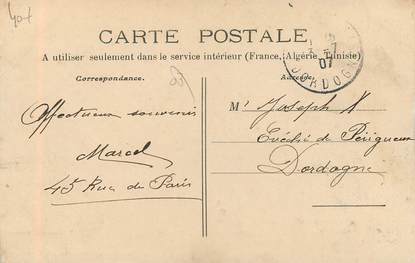 CARTE POSTALE
A utiliser seulement dans le service intérieur (France, Algérie, Tunisie)
Correspondance.
Adresse.
Affectueux souvenir
Marcel
45 Rue de Paris
M' Joseph K
Evêché de Périgueux
Dordogne
07
DORDOGNE